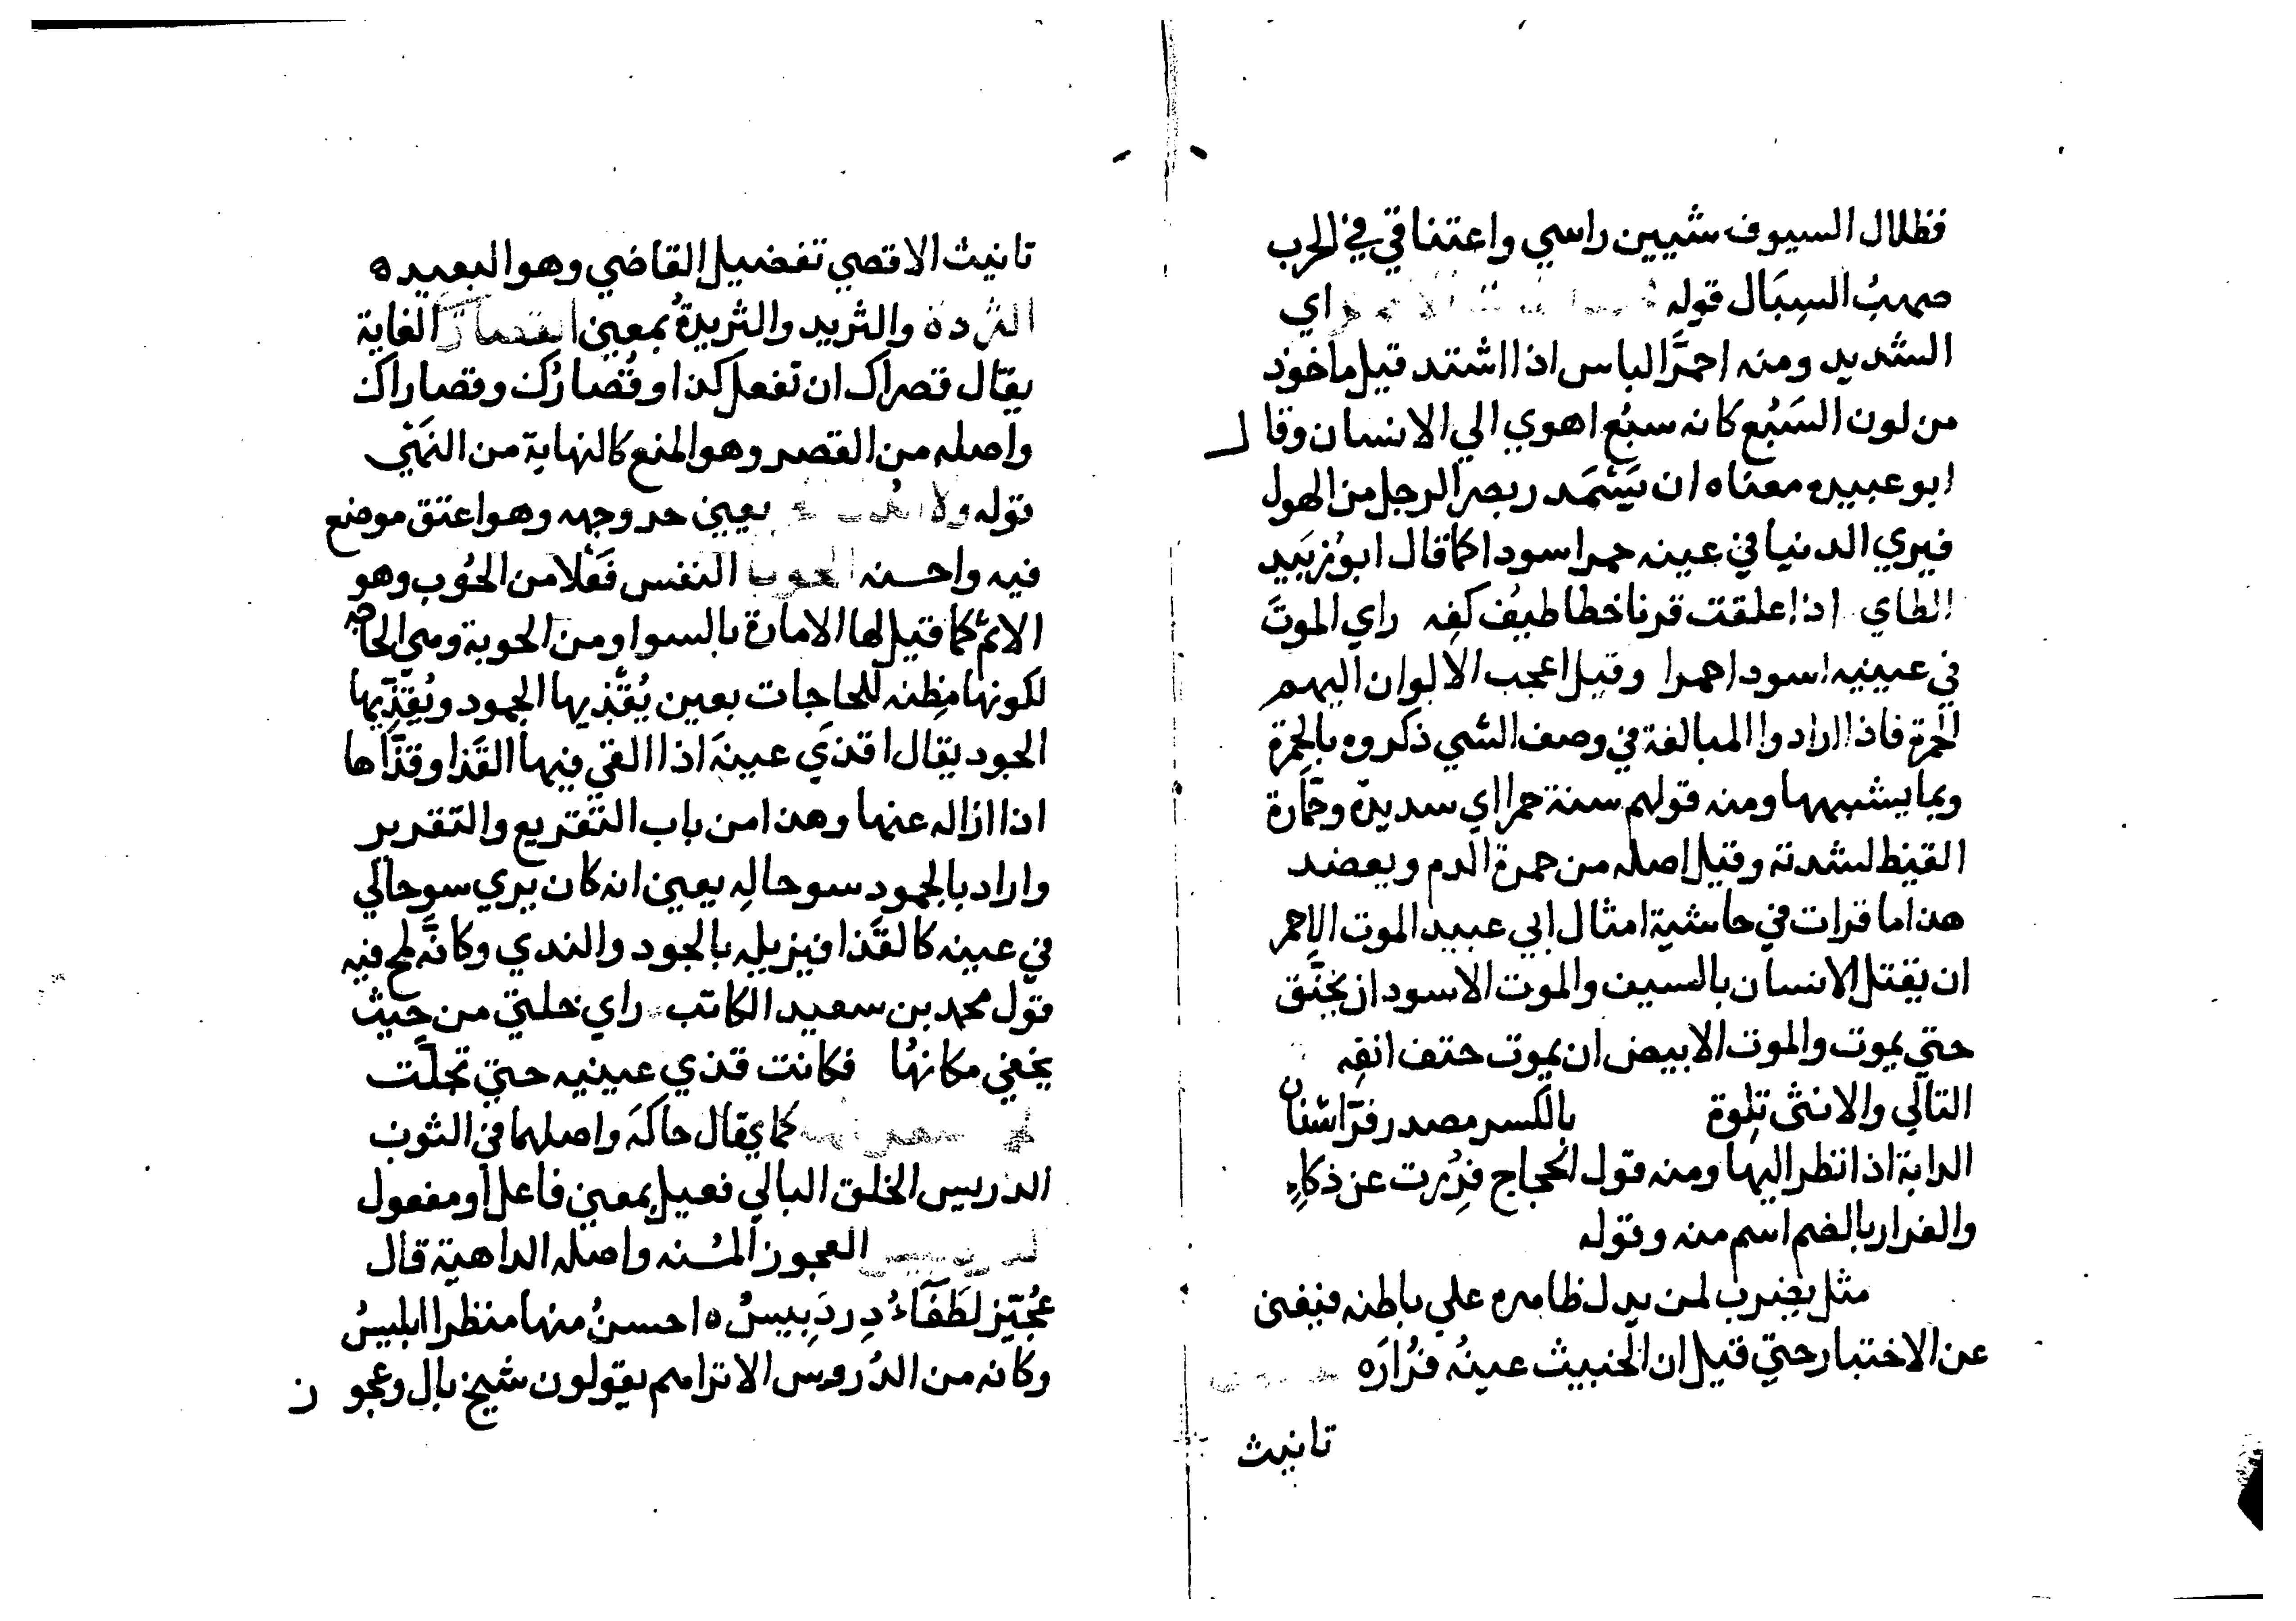 فظلال السيوف شيبن راسي واعتناقي في الحرب
صهب السِبَال قوله اي
الشديد ومنه احمرَّ الباس اذا اشتد قيل ماخوذ
من لون السَبُع كانه سبُع اهوي الي الانسان وقال
ابو عبيده معناه ان يَسْمَدر بصر الرجل من الهول
فيري الدنيا في عينه حمرا سودا كما قال ابوزُبَيد
الطاي اذا علقت قرنا خطاطيفُ كفِه راي الموتَ
في عينيه اسود احمرا وقيل اعجب الالوان اليهم
الحمرة فاذا ارادوا المبالغة في وصف الشي ذكروه بالحمرة
وبما يشبهها ومنه قولهم سنة حمرا اي سديدة وحَمارَّة
القيظ لشدته وقيل اصله من حمرة الدم ويعضد
هذا ما قرات في حاشية امثال ابي عبيد الموت الاحمر
ان يقتل الانسان بالسيف والموت الاسود ان يختَنق
حتي يموت والموت الابيض ان يموت حتف انفِه
التالي والانثى تِلوة بالكسر مصدر فرّ اسنان
الدابة اذا نظر اليها ومنه قول الحجاج فرُرت عن ذكاءٍ
والفرار بالضم اسم منه وقوله
مثل يضرب لمن يدل ظاهره علي باطنه فيغني
عن الاختبار حتي قيل ان الخبيث عينُه فُرارَه
تانيث
تانيث الاقصي تفضيل القاضي وهو البعيده
الثردة والثريد والثريدةُ بمعين القصارَي الغاية
يقال قصراك ان تفعل كذا وقُصارُك وقصاراك
واصله من القصر وهو المنع كالنهاية من النَهْي
قوله ولا يعيني حر وجهه وهو اعتق موضع
فيه واحسنه الحوبا النفس فَعْلا من الحُوب وهو
الاثم كما قيل لها الامارة بالسوا ومن الحوبة وهي الحاجة
لكونها مظنه للحاجات بعين يُقْذيها الجمود ويُقذِّيها
الجود يقال اقذي عينَه اذا القي فيها القَذا وقذَّاها
اذا ازاله عنها وهذا من باب التقريع والتقرير
واراد بالجمود سو حالِه يعين انه كان يري سو حالي
في عينه كالقَذا فيزيله بالجود والندي وكانَّه لمح فيه
قول محمد بن سعيد الكاتب راي خلتي من حيث
يخفي مكانهُا فكانت قذي عينيه حتي تجلّت
كما يقال حاكَه واصلهما في الثوب
الدريس الخلق البالي فعيل بمعين فاعل او مفعول
العجوز المُسنه واصله الداهية قال
عُجَيّز لَطَفَاءُ دِردَبِيسُ ه احسنُ منها منظرا ابليسُ
وكانه من الدُروس الا تراهم يقولون شيخ بال وعجوز